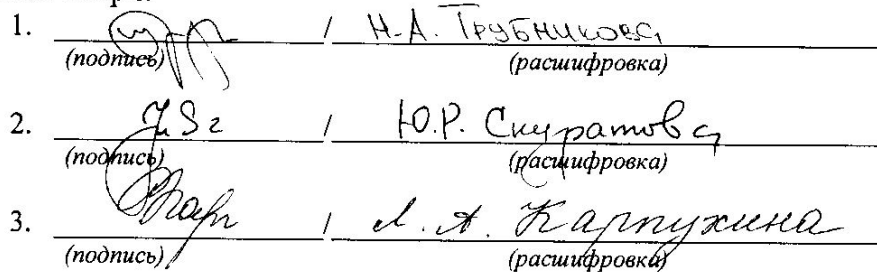 1. / Н.А. Трубникова
(подпись) (расшифровка)
2. / Ю.Р. Скуратова
(подпись) (расшифровка)
3. / Л.А. Карпухина
(подпись) (расшифровка)